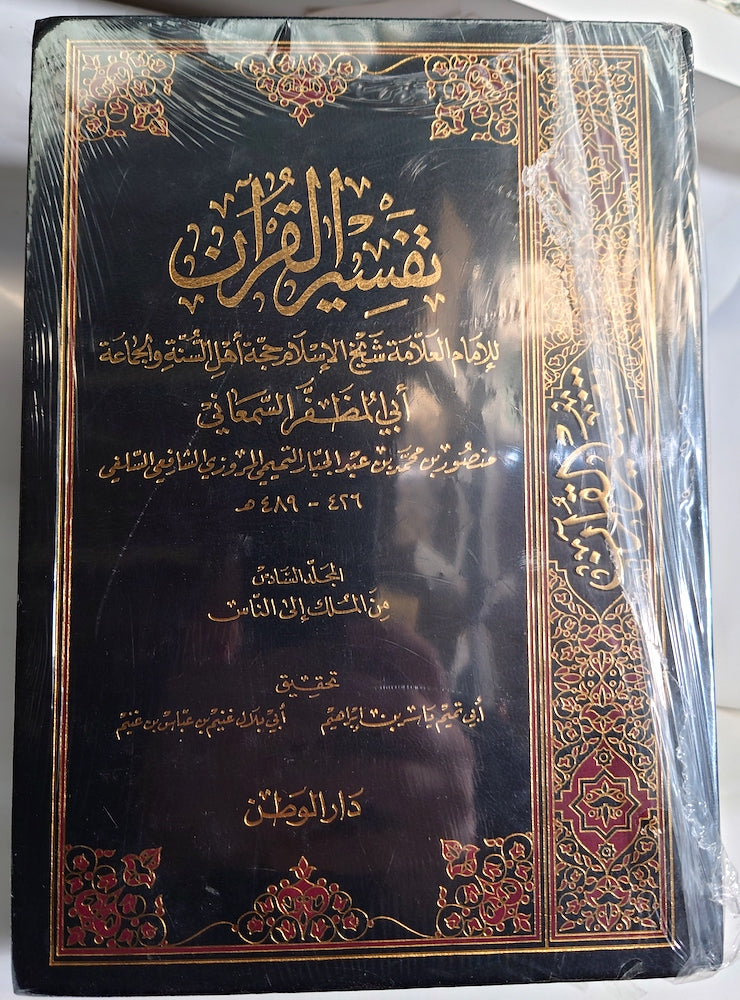 تَفْسِيرُ القُرْآنِ
للإمَام العَلَّامَة شَيْخ الإسْلَام حُجَّة أهْل السُّنَّةِ وَالجَمَاعَة
أَبِي المُظَفَّر السَّمْعَانِي
منصُور بن محمَّد بن عبد الجبَّار التَّميمي المروزي الشافعي السَّلفي
٤٢٦ - ٤٨٩ هـ
المجَلَّد السَّادِس
مِنَ المُلْك إلى النَّاس
تحقِيق
أبي تميم ياسر بن إبراهيم أبي بلال غنيم بن عبّاس بن غنيم
دَار الوَطَن
تفسير القرآن